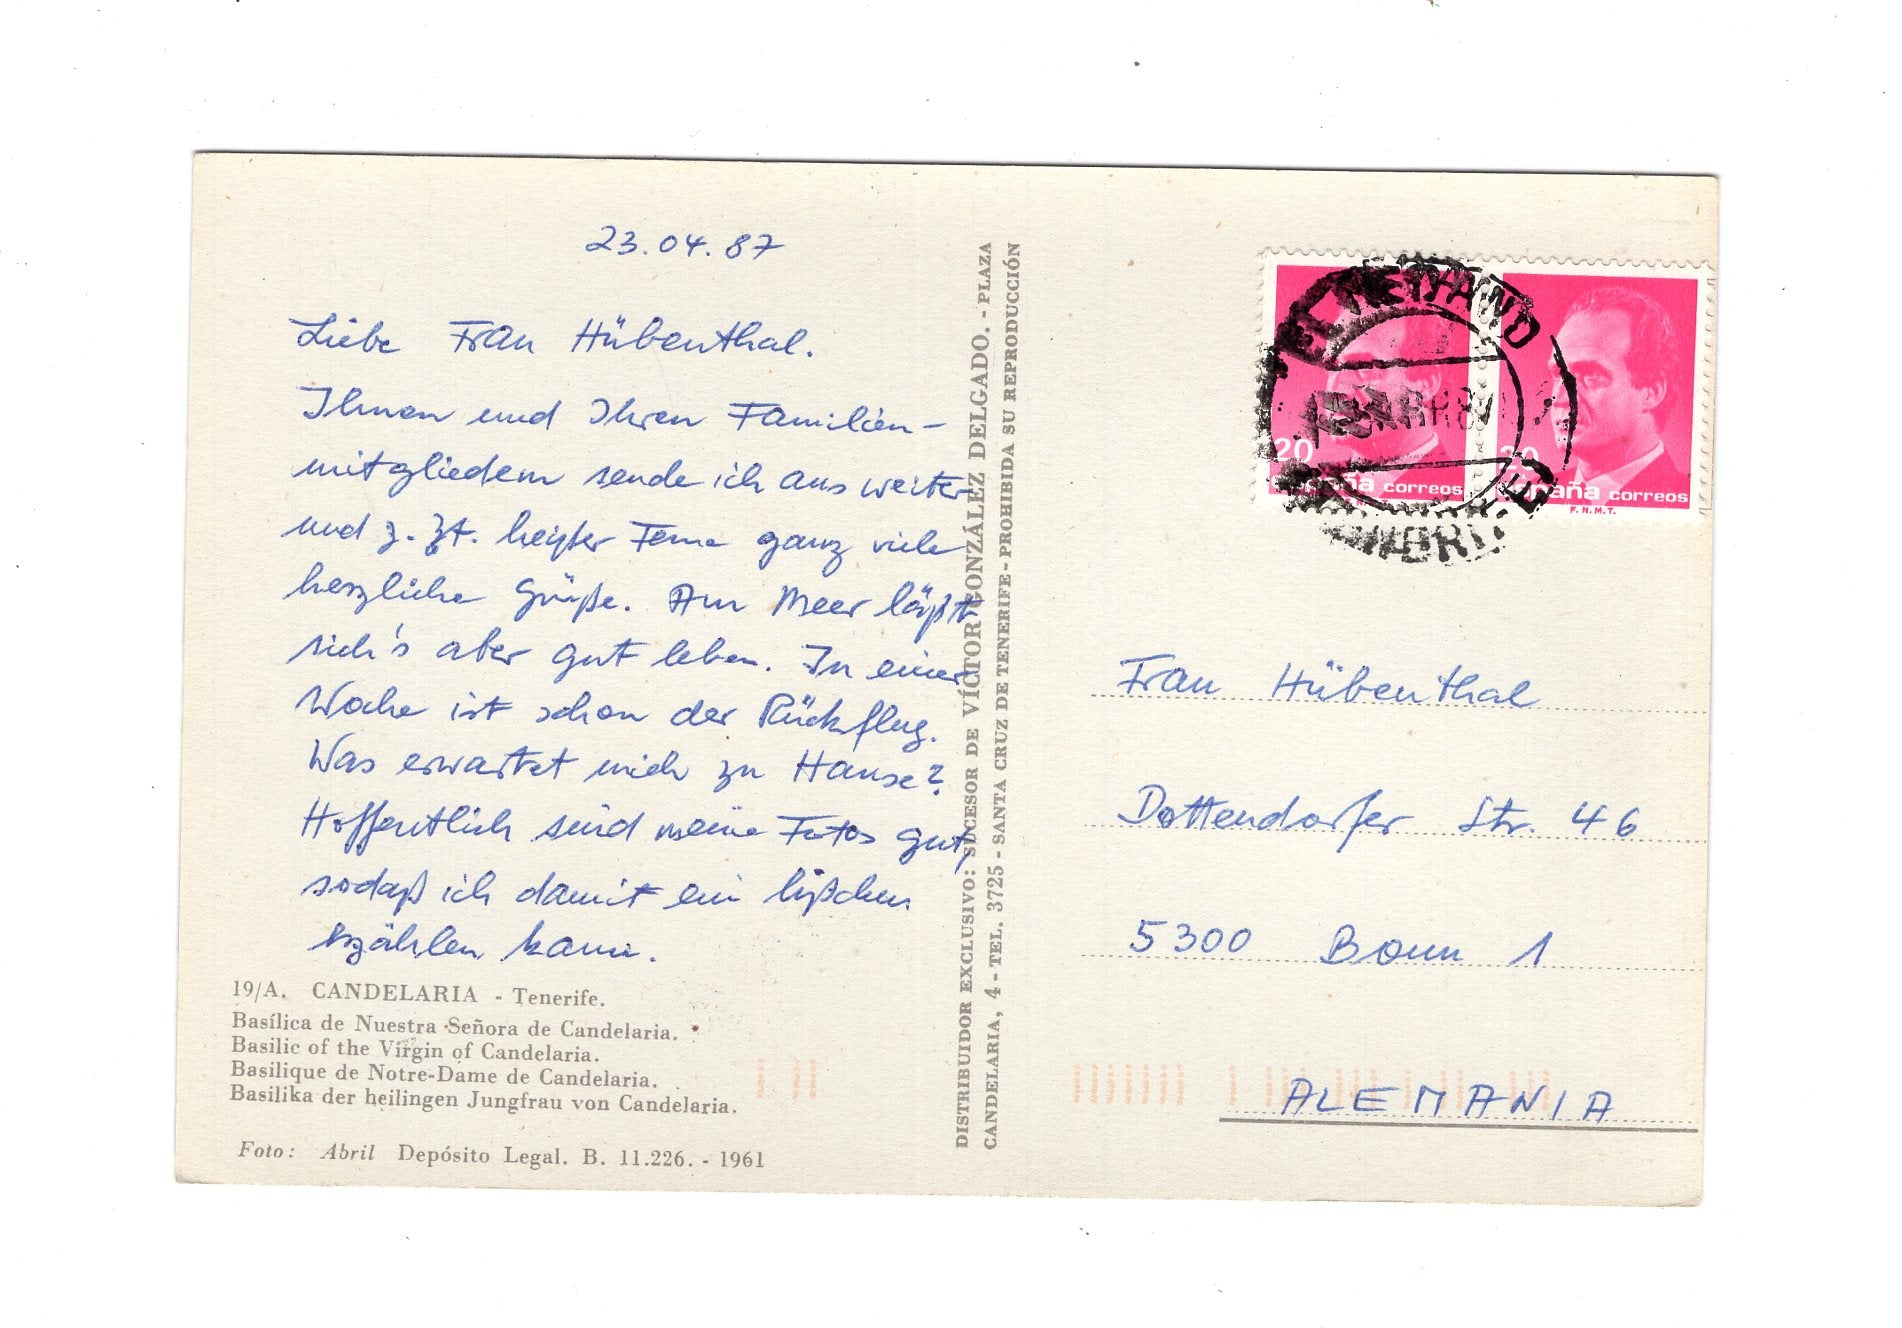 23.04.87
Liebe Frau Hübenthal.
Ihnen und Ihren Familien-
mitgliedern sende ich aus weiter
und z. Zt. heißer Ferne ganz viele
herzliche Grüße. Am Meer läßt
sich's aber gut leben. In einer
Woche ist schon der Rückflug.
Was erwartet mich zu Hause?
Hoffentlich sind meine Fotos gut,
sodaß ich damit ein bißchen
erzählen kann.
19/A. CANDELARIA - Tenerife.
Basílica de Nuestra Señora de Candelaria.
Basilic of the Virgin of Candelaria.
Basilique de Notre-Dame de Candelaria.
Basilika der heilingen Jungfrau von Candelaria.
Foto: Abril Depósito Legal. B. 11.226. - 1961
DISTRIBUIDOR EXCLUSIVO: SUCESOR DE VÍCTOR GONZÁLEZ DELGADO. - PLAZA
CANDELARIA, 4 - TEL. 3725 - SANTA CRUZ DE TENERIFE - PROHIBIDA SU REPRODUCCIÓN
20
correos
20
España correos
F.N.M.T.
EL MEDANO
Frau Hübenthal
Dottendorfer Str. 46
5300 Bonn 1
ALEMANIA